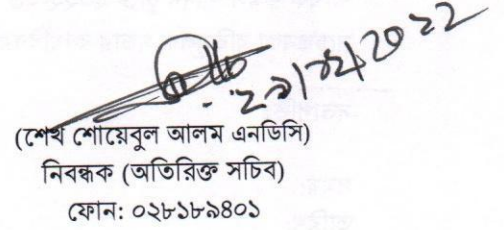 (শেখ শোয়েবুল আলম এনডিসি)
নিবন্ধক (অতিরিক্ত সচিব)
ফোন: ০২৮১৮৯৪০১